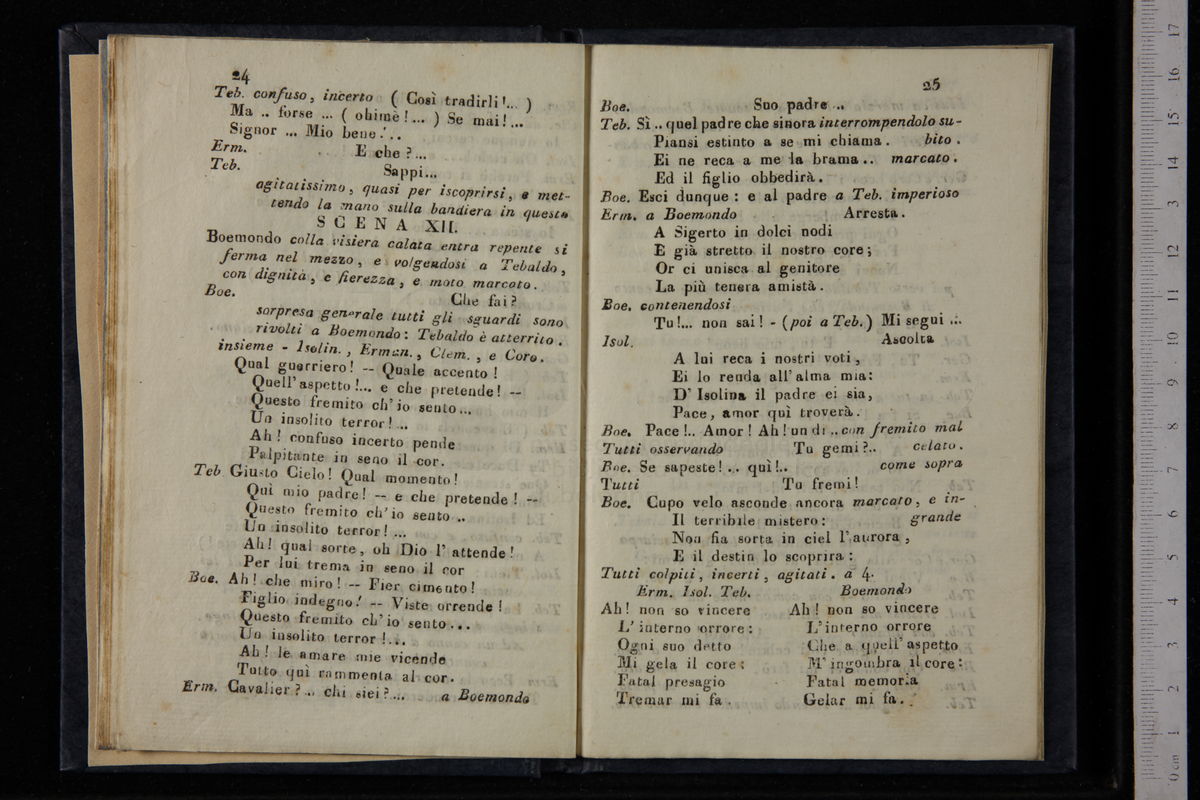 24
Teb. confuso, incerto ( Così tradirli!... )
Ma .. forse ... ( ohimè!... ) Se mai!...
Signor ... Mio bene!..
Erm. E che?...
Teb. Sappi...
agitatissimo, quasi per iscoprirsi, e met-
tendo la mano sulla bandiera in questo
SCENA XII.
Boemondo colla visiera calata entra repente si
ferma nel mezzo, e volgendosi a Tebaldo,
con dignità, e fierezza, e moto marcato.
Boe. Che fai?
sorpresa generale tutti gli sguardi sono
rivolti a Boemondo: Tebaldo è atterrito.
insieme - Isolin., Erman., Clem., e Coro.
Qual guerriero! -- Quale accento!
Quell' aspetto!... e che pretende! --
Questo fremito ch' io sento...
Un insolito terror! ..
Ah! confuso incerto pende
Palpitante in seno il cor.
Teb Giusto Cielo! Qual momento!
Qui mio padre! -- e che pretende! --
Questo fremito ch' io sento ..
Un insolito terror! ...
Ah! qual sorte, oh Dio l' attende!
Per lui trema in seno il cor
Boe. Ah! che miro! -- Fier cimento!
Figlio indegno! -- Viste orrende!
Questo fremito ch' io sento...
Un insolito terror!...
Ah! le amare mie vicende
Tutto quì rammenta al cor.
Erm. Cavalier?... chi siei?... a Boemondo
25
Boe. Suo padre ..
Teb. Sì .. quel padre che sinora interrompendolo su-
Piansi estinto a se mi chiama. bito.
Ei ne reca a me la brama.. marcato.
Ed il figlio obbedirà.
Boe. Esci dunque: e al padre a Teb. imperioso
Erm. a Boemondo Arresta.
A Sigerto in dolci nodi
E già stretto il nostro core;
Or ci unisca al genitore
La più tenera amistà.
Boe. contenendosi
Tu!... non sai! - (poi a Teb.) Mi segui ...
Isol. Ascolta
A lui reca i nostri voti,
Ei lo renda all' alma mia:
D' Isolina il padre ei sia,
Pace, amor quì troverà.
Boe. Pace!.. Amor! Ah! un dì .. con fremito mal
Tutti osservando Tu gemi?.. celato.
Boe. Se sapeste! .. quì!.. come sopra
Tutti Tu fremi!
Boe. Cupo velo asconde ancora marcato, e in-
Il terribile mistero: grande
Non fia sorta in ciel l' aurora,
E il destin lo scoprirà:
Tutti colpiti, incerti, agitati. a 4.
Erm. Isol. Teb. Boemondo
Ah! non so vincere Ah! non so vincere
L' interno orrore: L' interno orrore
Ogni suo detto Che a quell' aspetto
Mi gela il core: M' ingombra il core:
Fatal presagio Fatal memoria
Tremar mi fa. Gelar mi fa.
0 cm 1 2 3 4 5 6 7 8 9 10 11 12 3 14 15 16 17